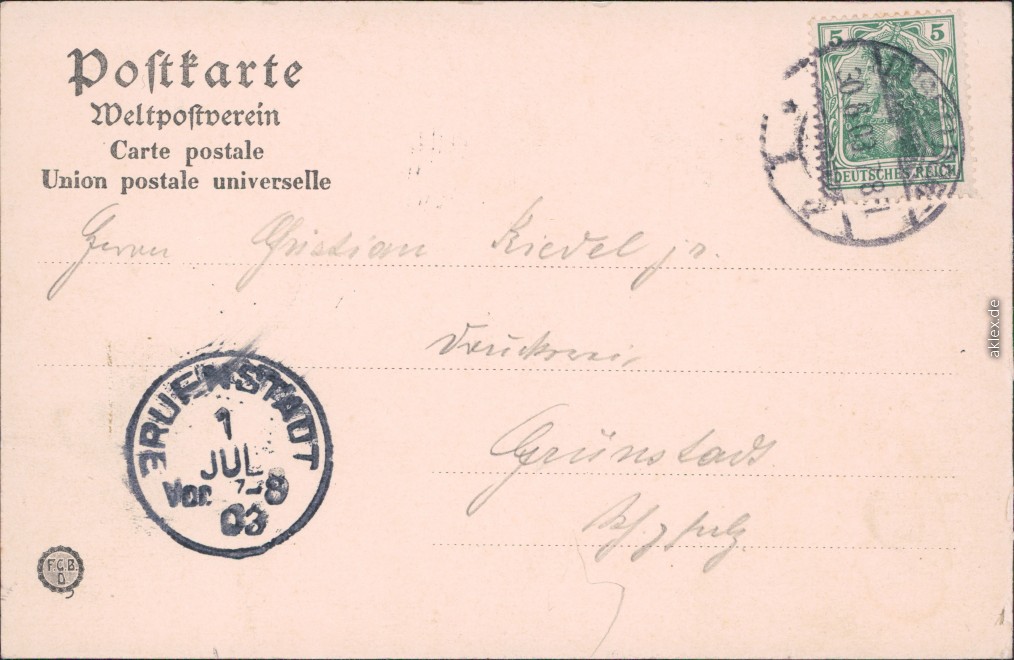 Postkarte
Weltpostverein
Carte postale
Union postale universelle
5 5
DEUTSCHES REICH
Herrn Christian Riedel jr.
Druckerei
Grünstadt
GRUENSTADT
1
JUL
Vor. 7-8
03
F.G.B.
D.
aklex.de